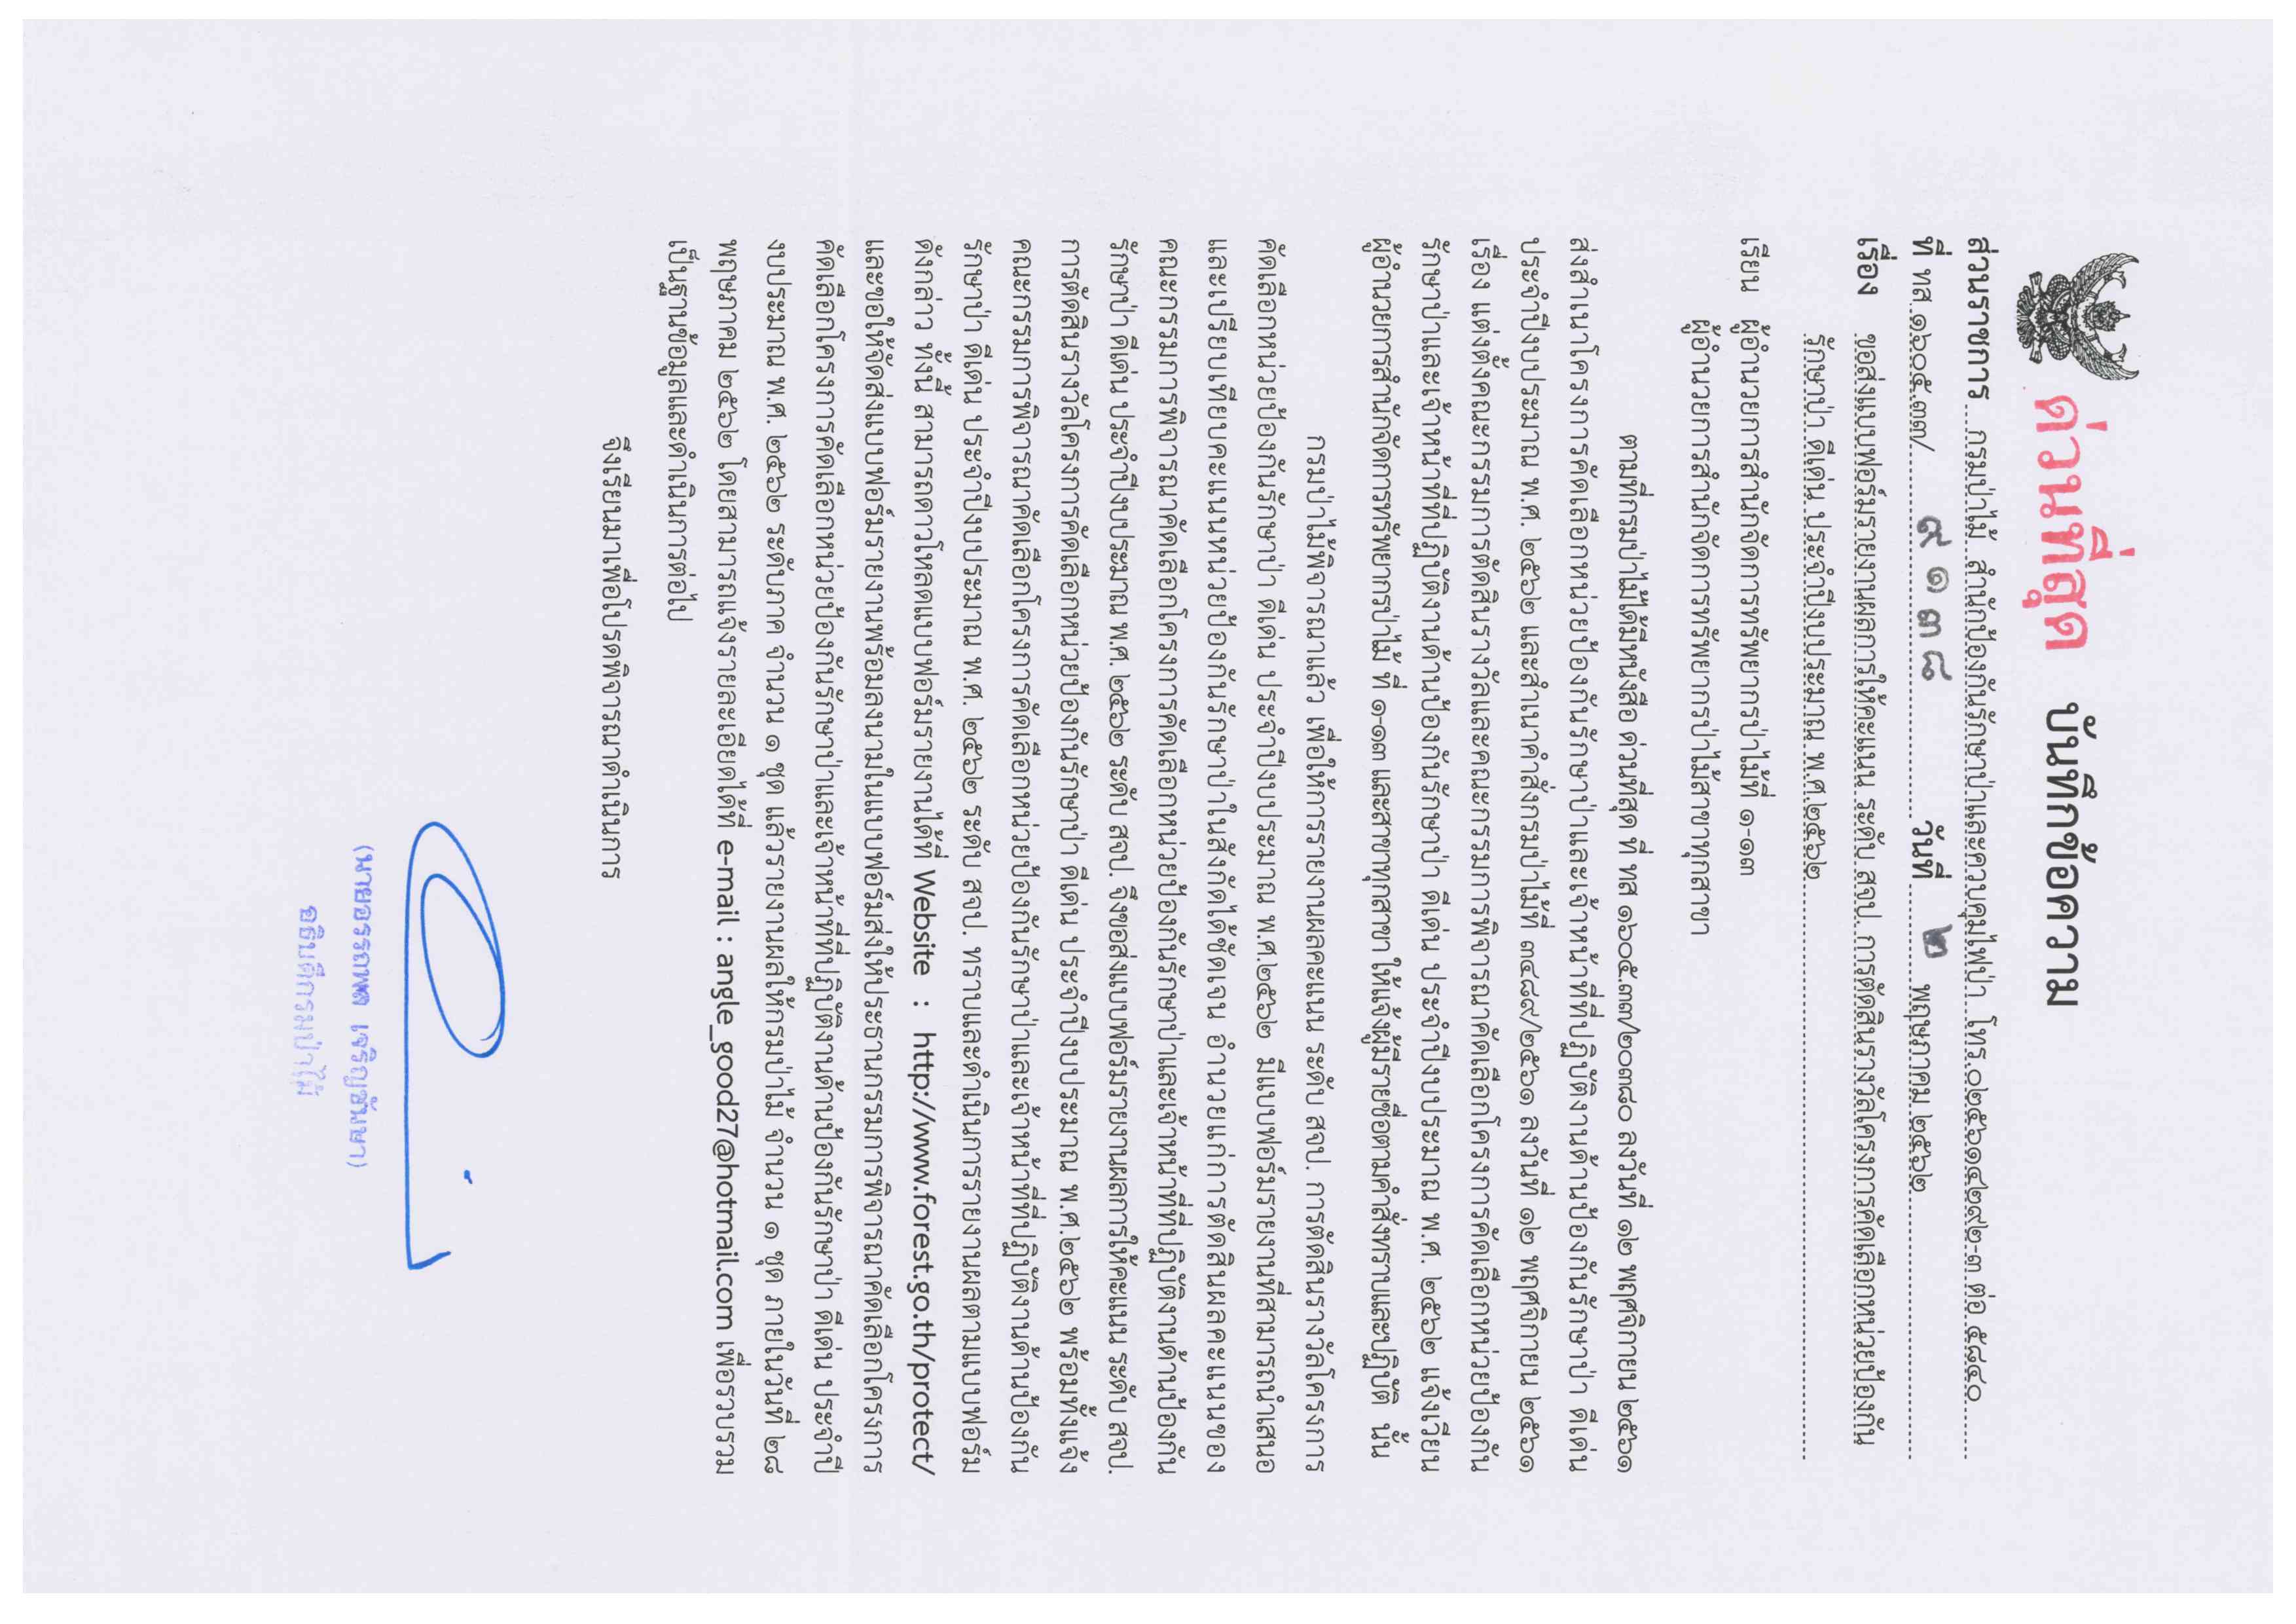 ด่วนที่สุด บันทึกข้อความ
ส่วนราชการ กรมป่าไม้ สำนักป้องกันรักษาป่าและควบคุมไฟป่า โทร.๐๒๕๖๑๔๒๙๒-๓ ต่อ ๕๘๔๐
ที่ ทส.๑๖๐๕.๓๓/ ๙๑๓๘ วันที่ ๒ พฤษภาคม ๒๕๖๒
เรื่อง ขอส่งแบบฟอร์มรายงานผลการให้คะแนน ระดับ สจป. การตัดสินรางวัลโครงการคัดเลือกหน่วยป้องกัน
รักษาป่า ดีเด่น ประจำปีงบประมาณ พ.ศ.๒๕๖๒
เรียน ผู้อำนวยการสำนักจัดการทรัพยากรป่าไม้ที่ ๑-๑๓
ผู้อำนวยการสำนักจัดการทรัพยากรป่าไม้สาขาทุกสาขา
ตามที่กรมป่าไม้ได้มีหนังสือ ด่วนที่สุด ที่ ทส ๑๖๐๕.๓๓/๒๐๓๘๐ ลงวันที่ ๑๒ พฤศจิกายน ๒๕๖๑
ส่งสำเนาโครงการคัดเลือกหน่วยป้องกันรักษาป่าและเจ้าหน้าที่ที่ปฏิบัติงานด้านป้องกันรักษาป่า ดีเด่น
ประจำปีงบประมาณ พ.ศ. ๒๕๖๒ และสำเนาคำสั่งกรมป่าไม้ที่ ๓๔๘๙/๒๕๖๑ ลงวันที่ ๑๒ พฤศจิกายน ๒๕๖๑
เรื่อง แต่งตั้งคณะกรรมการตัดสินรางวัลและคณะกรรมการพิจารณาคัดเลือกโครงการคัดเลือกหน่วยป้องกัน
รักษาป่าและเจ้าหน้าที่ที่ปฏิบัติงานด้านป้องกันรักษาป่า ดีเด่น ประจำปีงบประมาณ พ.ศ. ๒๕๖๒ แจ้งเวียน
ผู้อำนวยการสำนักจัดการทรัพยากรป่าไม้ ที่ ๑-๑๓ และสาขาทุกสาขา ให้แจ้งผู้มีรายชื่อตามคำสั่งทราบและปฏิบัติ นั้น
กรมป่าไม้พิจารณาแล้ว เพื่อให้การรายงานผลคะแนน ระดับ สจป. การตัดสินรางวัลโครงการ
คัดเลือกหน่วยป้องกันรักษาป่า ดีเด่น ประจำปีงบประมาณ พ.ศ.๒๕๖๒ มีแบบฟอร์มรายงานที่สามารถนำเสนอ
และเปรียบเทียบคะแนนหน่วยป้องกันรักษาป่าในสังกัดได้ชัดเจน อำนวยแก่การตัดสินผลคะแนนของ
คณะกรรมการพิจารณาคัดเลือกโครงการคัดเลือกหน่วยป้องกันรักษาป่าและเจ้าหน้าที่ที่ปฏิบัติงานด้านป้องกัน
รักษาป่า ดีเด่น ประจำปีงบประมาณ พ.ศ. ๒๕๖๒ ระดับ สจป. จึงขอส่งแบบฟอร์มรายงานผลการให้คะแนน ระดับ สจป.
การตัดสินรางวัลโครงการคัดเลือกหน่วยป้องกันรักษาป่า ดีเด่น ประจำปีงบประมาณ พ.ศ.๒๕๖๒ พร้อมทั้งแจ้ง
คณะกรรมการพิจารณาคัดเลือกโครงการคัดเลือกหน่วยป้องกันรักษาป่าและเจ้าหน้าที่ที่ปฏิบัติงานด้านป้องกัน
รักษาป่า ดีเด่น ประจำปีงบประมาณ พ.ศ. ๒๕๖๒ ระดับ สจป. ทราบและดำเนินการรายงานผลตามแบบฟอร์ม
ดังกล่าว ทั้งนี้ สามารถดาวโหลดแบบฟอร์มรายงานได้ที่ Website : http://www.forest.go.th/protect/
และขอให้จัดส่งแบบฟอร์มรายงานพร้อมลงนามในแบบฟอร์มส่งให้ประธานกรรมการพิจารณาคัดเลือกโครงการ
คัดเลือกโครงการคัดเลือกหน่วยป้องกันรักษาป่าและเจ้าหน้าที่ที่ปฏิบัติงานด้านป้องกันรักษาป่า ดีเด่น ประจำปี
งบประมาณ พ.ศ. ๒๕๖๒ ระดับภาค จำนวน ๑ ชุด แล้วรายงานผลให้กรมป่าไม้ จำนวน ๑ ชุด ภายในวันที่ ๒๘
พฤษภาคม ๒๕๖๒ โดยสามารถแจ้งรายละเอียดได้ที่ e-mail : angle_good27@hotmail.com เพื่อรวบรวม
เป็นฐานข้อมูลและดำเนินการต่อไป
จึงเรียนมาเพื่อโปรดพิจารณาดำเนินการ
(นายอรรถพล เจริญชันษา)
อธิบดีกรมป่าไม้